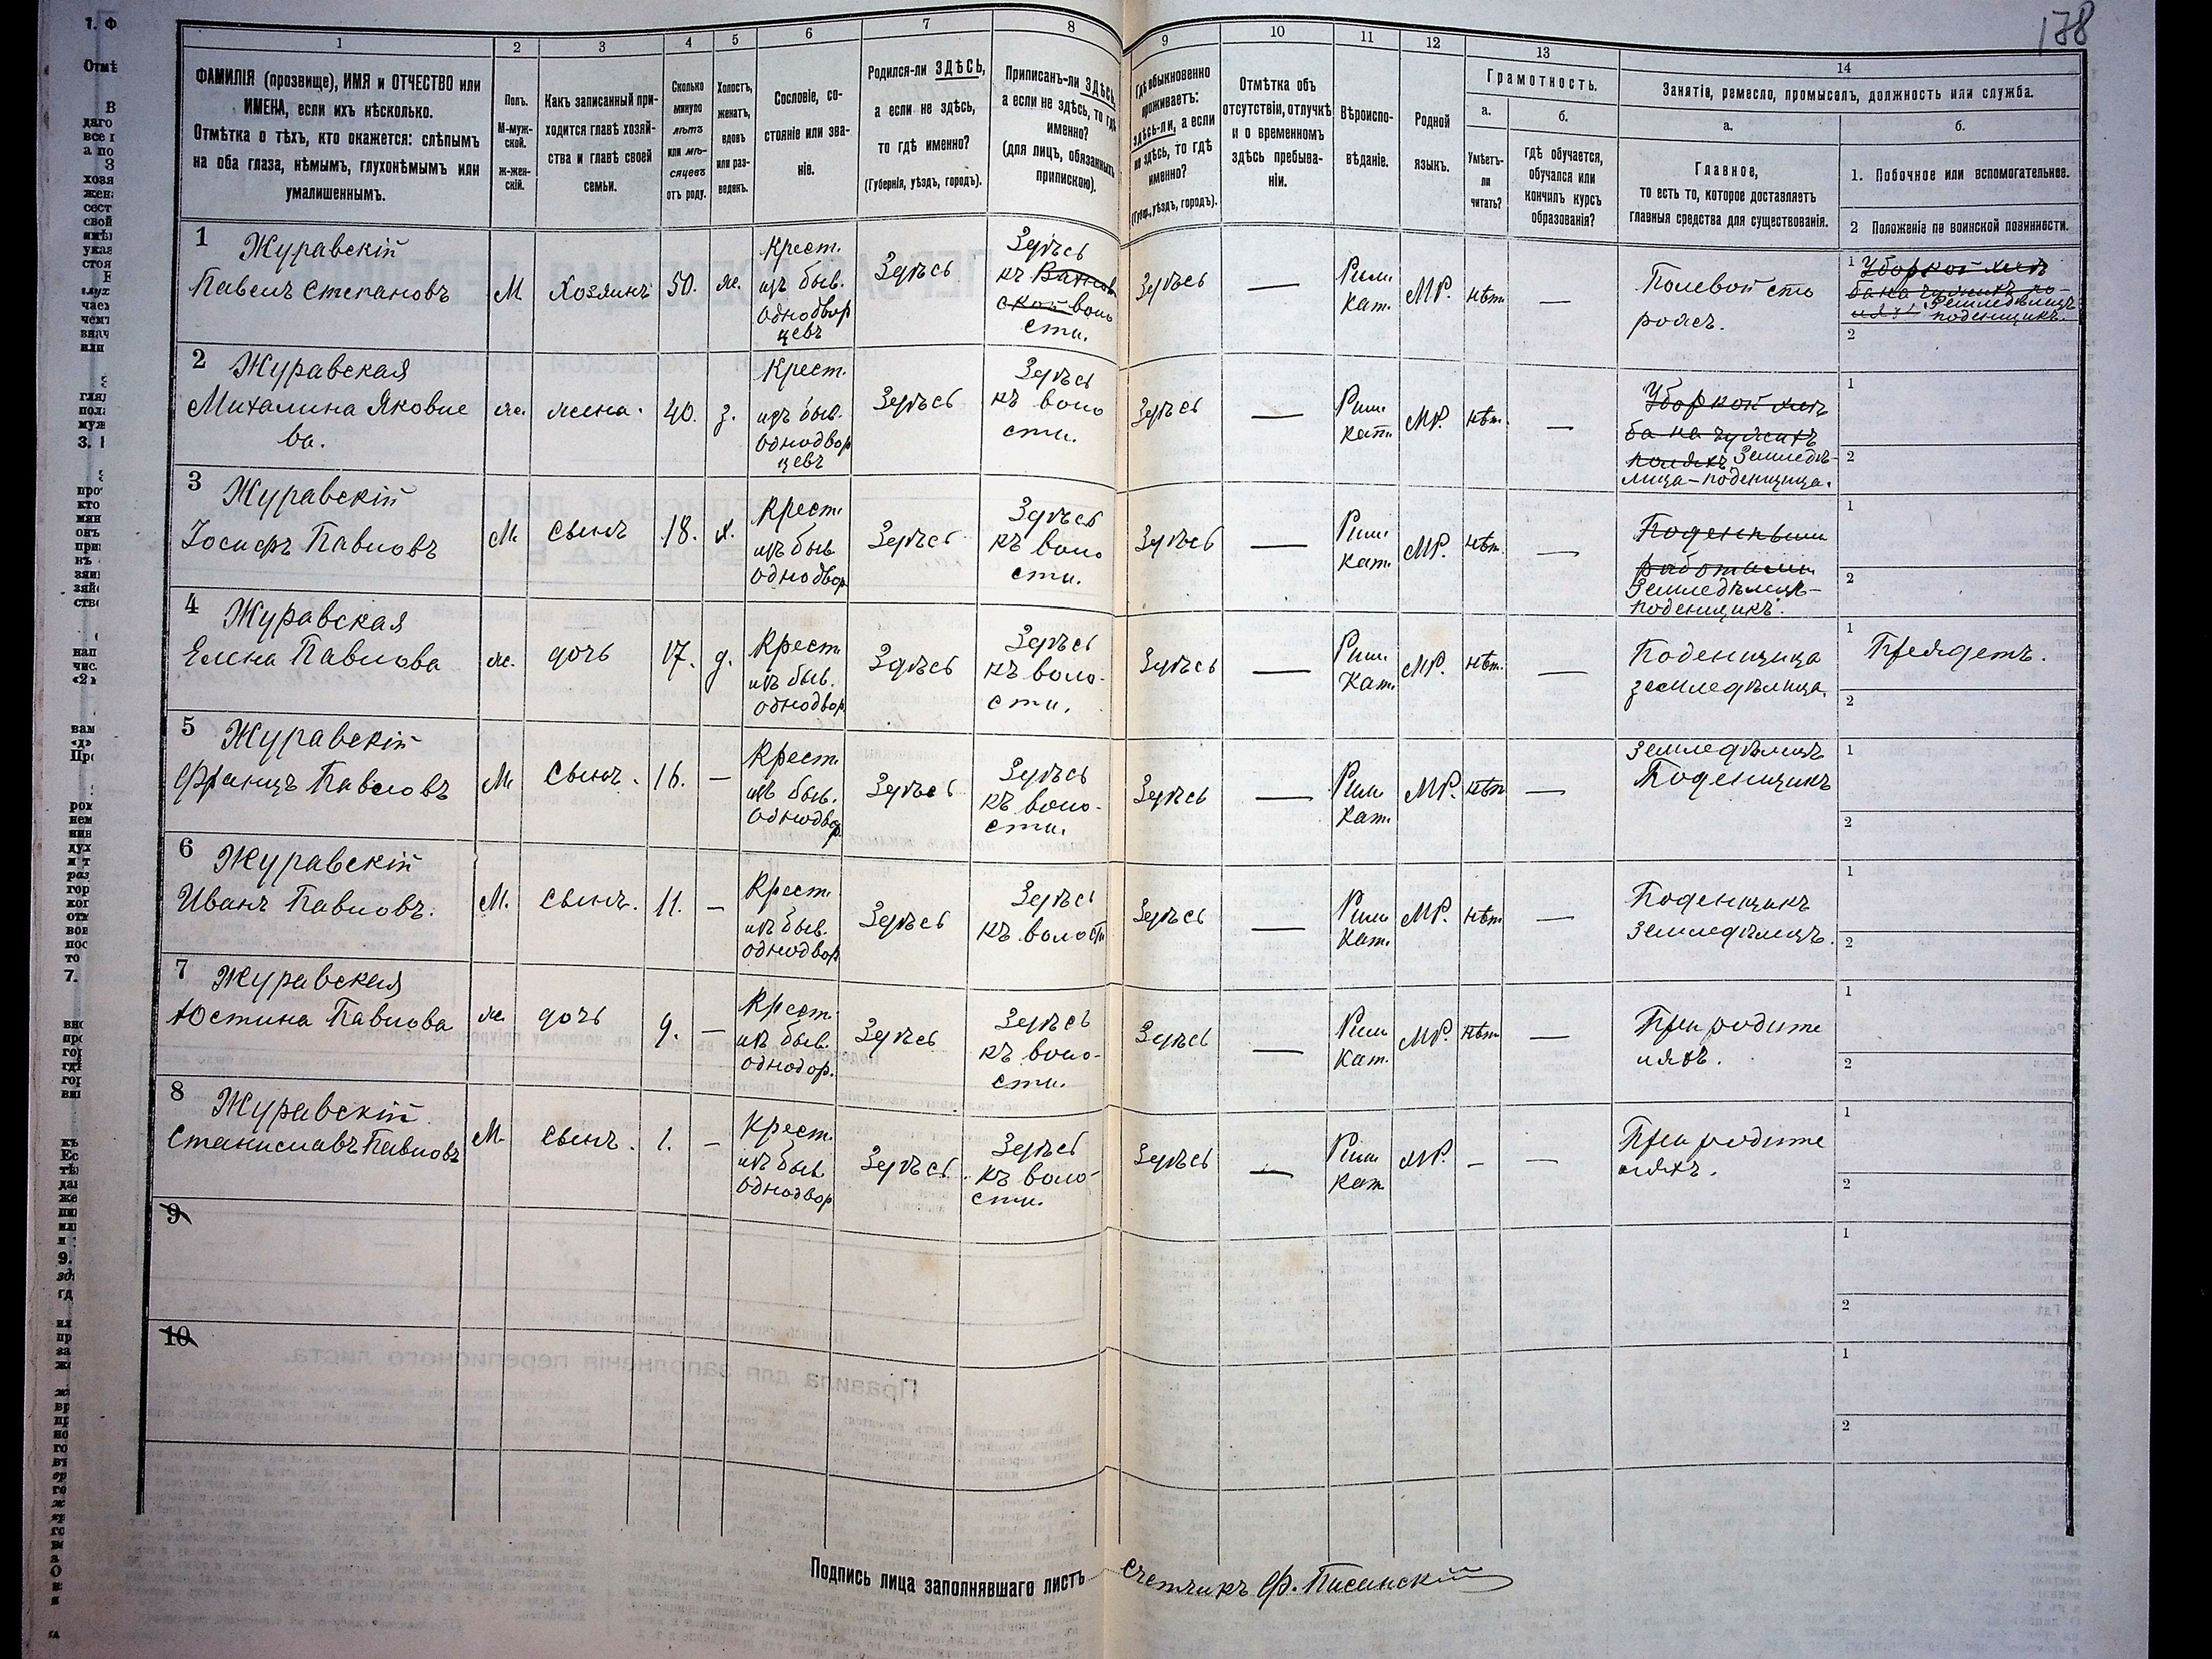 178
1 2 3 4 5 6 7 8 9 10 11 12 13 14
ФАМИЛІЯ (прозвище), ИМЯ и ОТЧЕСТВО или
ИМЕНА, если ихъ нѣсколько.
Отмѣтка о тѣхъ, кто окажется: слѣпымъ
на оба глаза, нѣмымъ, глухонѣмымъ или
умалишеннымъ.
Полъ.
М-муж-
ской.
Ж-жен-
скій.
Какъ записанный при-
ходится главѣ хозяй-
ства и главѣ своей
семьи.
Сколько
минуло
лѣтъ
или мѣ-
сяцевъ
отъ роду.
Холостъ,
женатъ,
вдовъ
или раз-
веденъ.
Сословіе, со-
стояніе или зва-
ніе.
Родился-ли ЗДѢСЬ,
а если не здѣсь,
то гдѣ именно?
(Губернія, уѣздъ, городъ).
Приписанъ-ли ЗДѢСЬ,
а если не здѣсь, то гдѣ
именно?
(для лицъ, обязанныхъ
припискою).
Гдѣ обыкновенно
проживаетъ:
здѣсь-ли, а если
не здѣсь, то гдѣ
именно?
(Губер., уѣздъ, городъ).
Отмѣтка объ
отсутствіи, отлучкѣ
и о временномъ
здѣсь пребыва-
ніи.
Вѣроиспо-
вѣданіе.
Родной
языкъ.
Грамотность.
а.
Умѣетъ-
ли
читать?
б.
гдѣ обучается,
обучался или
кончилъ курсъ
образованія?
Занятіе, ремесло, промыселъ, должность или служба.
а.
Главное,
то есть то, которое доставляетъ
главныя средства для существованія.
б.
1. Побочное или вспомогательное.
2 Положеніе по воинской повинности.
1 Журавскій
Павелъ Степановъ
М
Хозяинъ
50.
ж.
Крест.
изъ быв.
однодвор
цевъ
Здѣсь
Здѣсь
къ
ской воло
сти.
Здѣсь
—
Рим.
кат.
МР.
нѣт
—
Полевой сто
рожъ.
1 Уборкой хлѣ
ба на чужихъ по-
ляхъ Земледѣлецъ
поденщикъ.
2
2 Журавская
Михалина Яковле
ва.
ж.
жена.
40.
з.
Крест.
изъ быв.
однодвор
цевъ
Здѣсь
Здѣсь
къ воло
сти.
Здѣсь
—
Рим.
кат.
МР.
нѣт.
—
Уборкой хлѣ
ба на чужихъ
поляхъ Земледѣ-
лица-поденщица.
1
2
3 Журавскій
Іосифъ Павловъ
М.
сынъ
18.
х.
Крест.
изъ быв
однодвор
Здѣсь
Здѣсь
къ воло
сти.
Здѣсь
—
Рим.
кат.
МР.
нѣт.
—
Поденными
работами
Земледѣлецъ-
поденщикъ.
1
2
4 Журавская
Елена Павлова
ж.
дочь
17.
д.
Крест.
изъ быв.
однодвор
Здѣсь
Здѣсь
къ воло-
сти.
Здѣсь
—
Рим.
Кат.
МР.
нѣт.
—
Поденщица
земледѣлица.
1 Прядетъ.
2
5 Журавскій
Францъ Павловъ
М
сынъ.
16.
—
Крест.
изъ быв.
однодвор
Здѣсь
Здѣсь
къ воло-
сти.
Здѣсь
—
Рим
Кат.
МР.
нѣт
—
Земледѣлецъ
Поденщикъ
1
2
6 Журавскій
Иванъ Павловъ.
М.
сынъ.
11.
—
Крест.
изъ быв.
однодвор
Здѣсь
Здѣсь
къ волости
Здѣсь
—
Рим
Кат.
МР.
нѣт
—
Поденщикъ
Земледѣлецъ.
1
2
7 Журавская
Юстина Павлова
ж.
дочь
9.
—
Крест.
изъ быв.
однодор.
Здѣсь
Здѣсь
къ воло-
сти.
Здѣсь
—
Рим
Кат.
МР.
нѣт
—
При родите
ляхъ.
1
2
8 Журавскій
Станиславъ Павловъ
М.
сынъ.
1.
—
Крест.
изъ быв
однодвор
Здѣсь.
Здѣсь
къ воло-
сти.
Здѣсь
—
Рим
кат
МР.
—
—
При родите
ляхъ.
1
2
9
1
2
10
1
2
Подпись лица заполнявшаго листъ Счетчикъ Ф. Писанскій